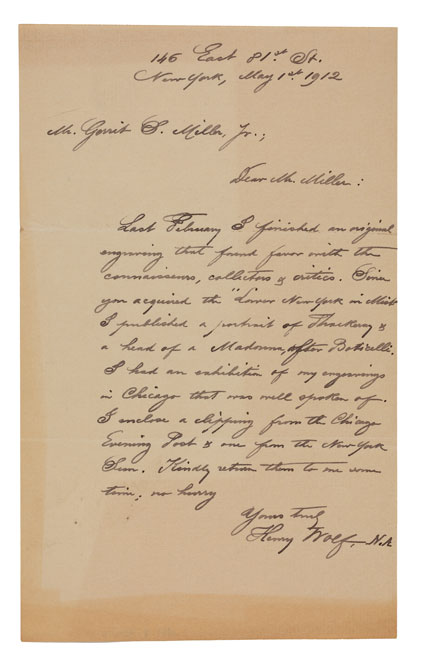 146 East 81st St.
New York, May 1st 1912
Mr. Gerrit S. Miller, Jr.;
Dear Mr. Miller:
Last February I finished an original
engraving that found favor with the
connaisseurs, collectors & critics. Since
you acquired the "Lower New York in Mist
I published a portrait of Thackeray &
a head of a Madonna, after Boticelli.
I had an exhibition of my engravings
in Chicago that was well spoken of.
I enclose a clipping from the Chicago
Evening Post & one from the New York
Sun. Kindly return them to me some
time; no hurry
Yours truly
Henry Wolf, N.A